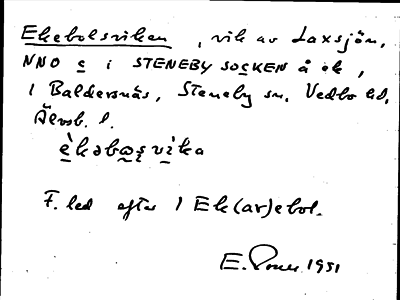 Ekebolsviken, vik av Laxsjön,
NNO c i STENEBY SOCKEN å ek,
1 Baldersnäs, Steneby sn, Vedbo hd,
Älvsb. l.
èkəbωsvika
F. led efter 1 Ek(ar)ebol.
E. 1951